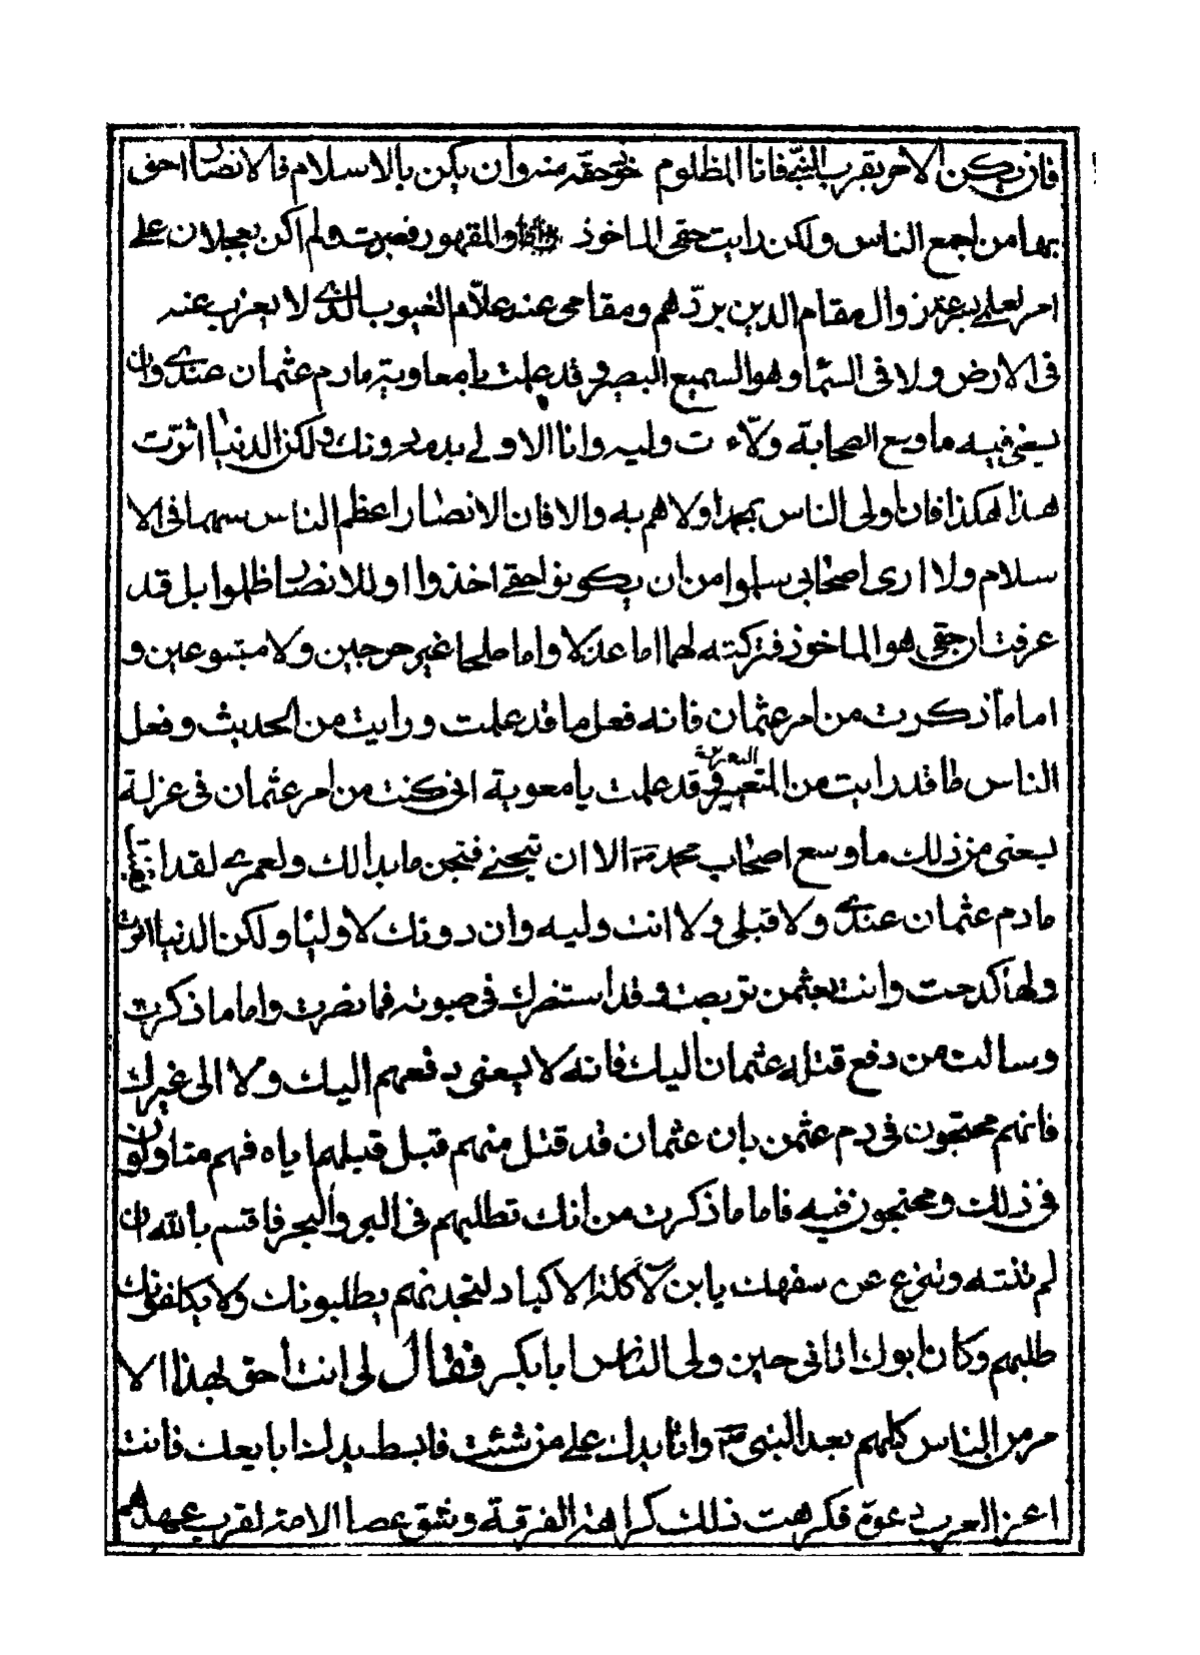 فان يكن الامر بقرب النبي فانا المظلوم حقه منه وان يكن بالاسلام فالانصار احق
بها من اجمع الناس ولكن رايت حقى الماخوذ والمقهور فصبرت ولم اكن بعجلان على
امر زوال مقام الدين بردّهم ومقامى عند علّام الغيوب الذى لا يعزب عنه
فى الارض ولا فى السماء وهو السميع البصير وقد علمت يا معاوية مادم عثمان عندى وان
يسعنى فيه ما وسع الصحابة ولاء ت وليه وانا الاولى بدمه دونك ولكن الدنيا اثرت
هذا هكذا فان اولى الناس بمحمد اولاهم به والا فان الانصار اعظم الناس سهما فى الا
سلام ولا ارى اصحابى سلموا من ان يكونوا حقى اخذوا او للانصار ظلموا بل قد
عرفت ان حقى هو الماخوذ فتركته لهما اما عدلا واما صلحا غير حرجين ولا متسوعين و
اما ما ذكرت من امر عثمان فانه فعل ما قد علمت ورايت من الحديث وفعل
الناس ما قد رايت من التغيير وقد علمت يا معوية انى كنت من امر عثمان فى عزلة
يسعنى من ذلك ما وسع اصحاب محمد ص الا ان تتجنى فتجن ما بدالك ولعمرى لقد
ما دم عثمان عندى ولا قبلى ولا انت وليه وان دونك لاوليا ولكن الدنيا اثرت
ولها كدحت وانت بعثمن تربصت وقد استنصرك فى حيوته فما نصرت واما ما ذكرت
وسالت من دفع قتله عثمان اليك فانه لا يسعنى دفعهم اليك ولا الى غيرك
فانهم محتجون فى دم عثمن بان عثمان قد قتل منهم قبل قبلهم اياه فهم متاولون
فى ذلك ومحتجون فيه فاما ما ذكرت من انك تطلبهم فى البر والبحر فاقسم بالله ان
لم تنته وتنزع عن سفهك يا بن آكلة الاكباد لتجدنهم يطلبونك ولا يكلفونك
طلبهم وكان ابوك اتانى حين ولى الناس ابابكر فقال لى انت احق لهذا الا
مر من الناس كلهم بعد النبى ص وانا يدك على من شئت فابسط يدك ابايعك فانت
اعز العرب دعوة فكرهت ذلك كراهة الفرقة وشق عصا الامة لقرب عهدهم